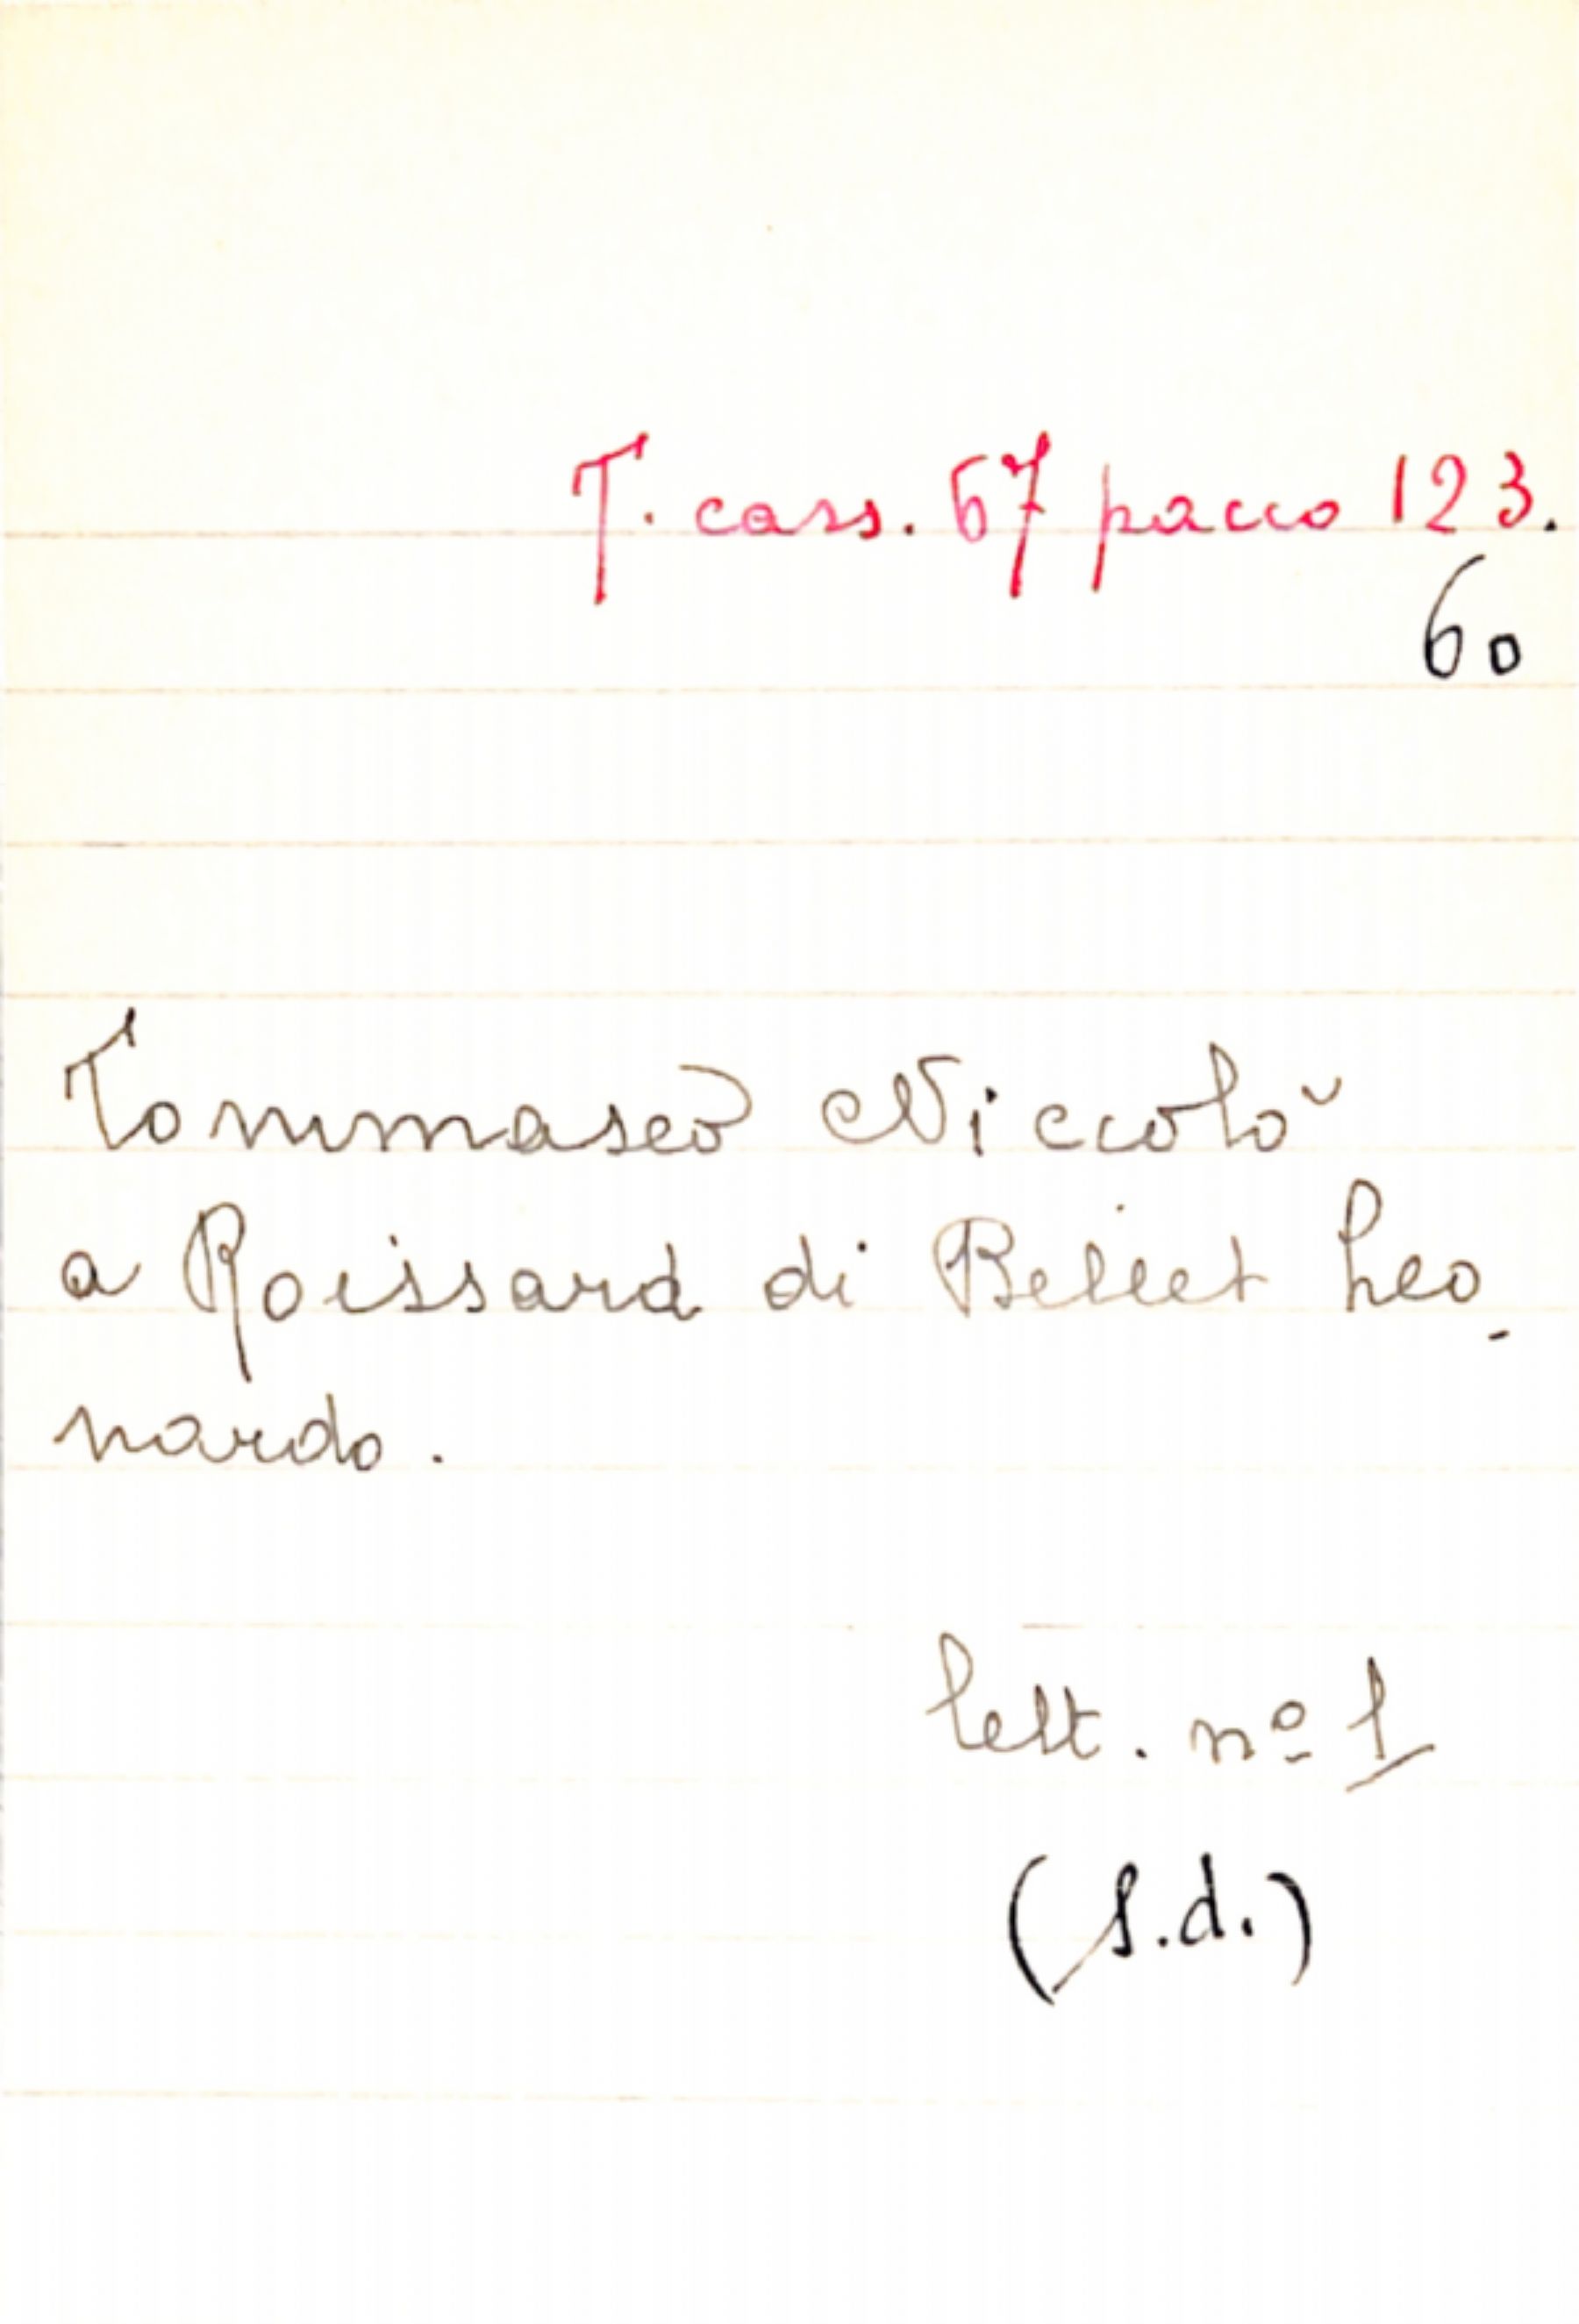 T. cass. 67 pacco 123.
60
Tommaseo Niccolò
a Roissard di Bellet Leo-
nardo.
lett. nº 1
(s.d.)